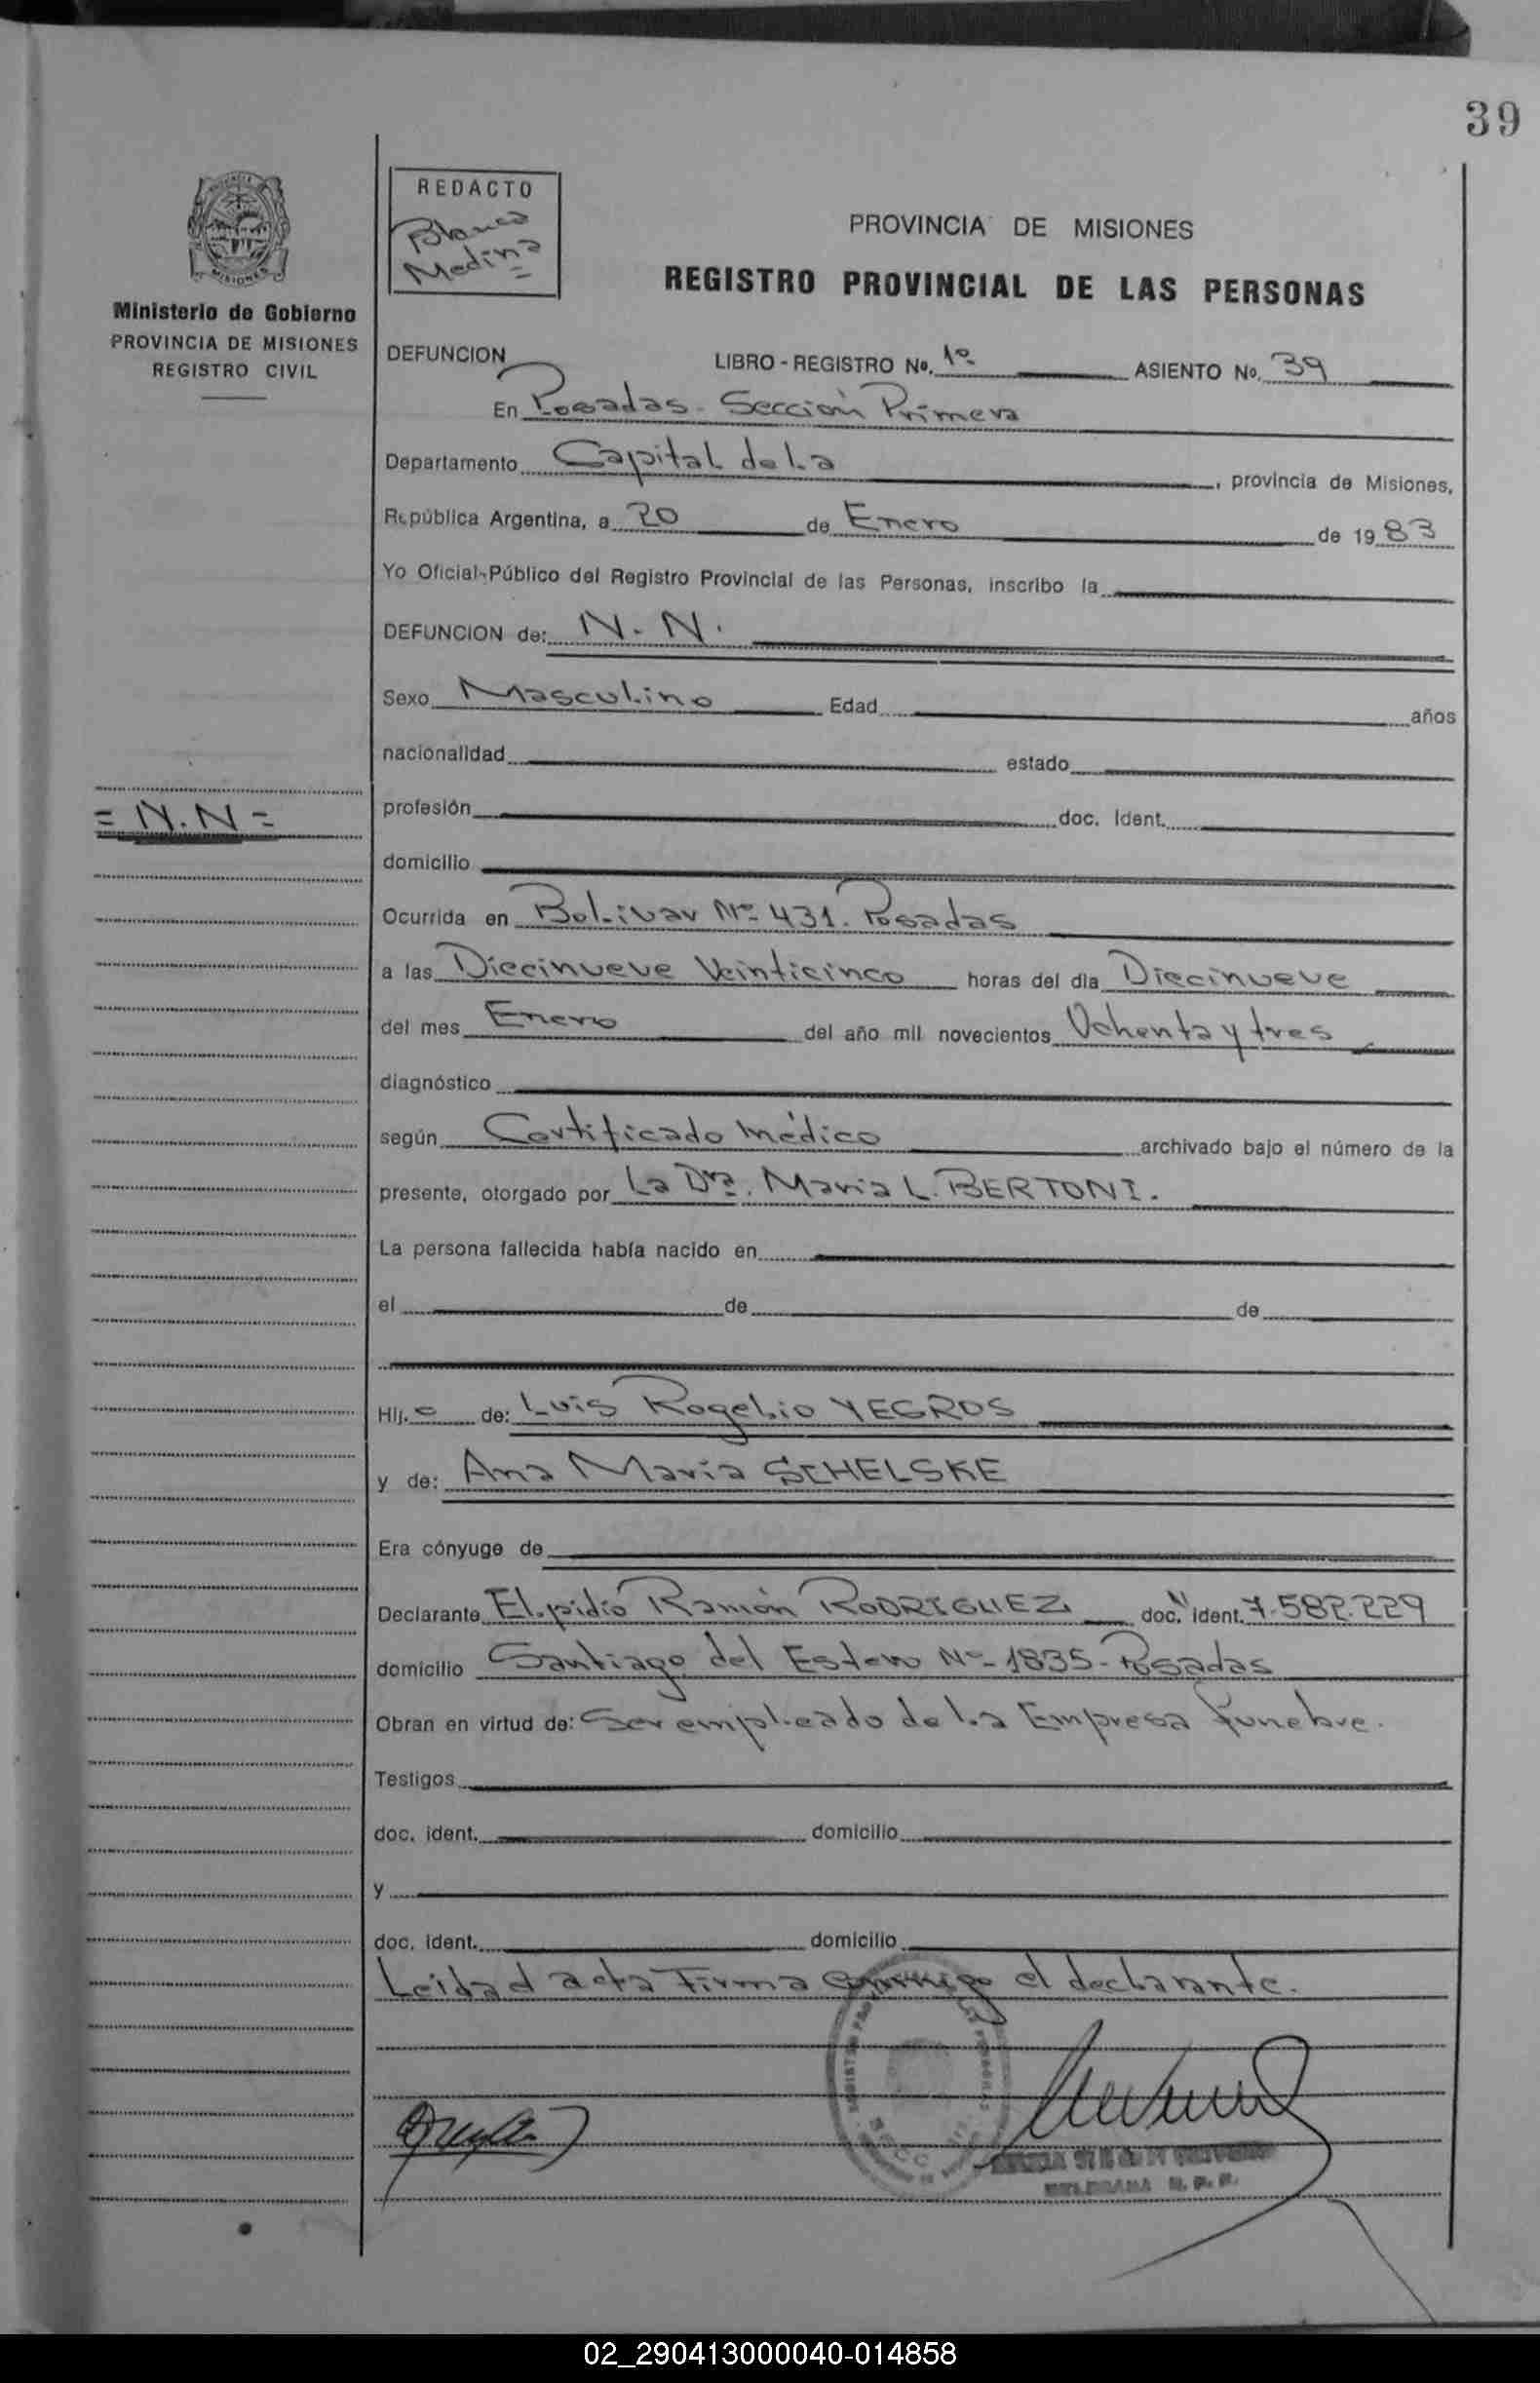 39
REDACTO
Blanca
Medina
PROVINCIA DE MISIONES
REGISTRO PROVINCIAL DE LAS PERSONAS
MISIONES
Ministerio de Gobierno
PROVINCIA DE MISIONES
REGISTRO CIVIL
DEFUNCION LIBRO - REGISTRO No. 1º ASIENTO No. 39
En Posadas - Sección Primera
Departamento Capital de La , provincia de Misiones,
República Argentina, a 20 de Enero de 1983
Yo Oficial Público del Registro Provincial de las Personas, inscribo la
DEFUNCION de: N. N.
Sexo Masculino Edad años
nacionalidad estado
= N.N =
profesión doc. ident.
domicilio
Ocurrida en Bolivar Nº 431. Posadas
a las Diecinueve Veinticinco horas del día Diecinueve
del mes Enero del año mil novecientos Ochenta y tres
diagnóstico
según Certificado médico archivado bajo el número de la
presente, otorgado por La Dra. Maria L. BERTONI.
La persona fallecida había nacido en
el de de
Hij. o de: Luis Rogelio YEGROS
y de: Ana Maria SCHELSKE
Era cónyuge de
Declarante Elpidio Ramón RODRIGUEZ doc. ident. 7.582.229
domicilio Santiago del Estero Nº 1835 - Posadas
Obran en virtud de: Ser empleado de la Empresa funebre.
Testigos
doc. ident. domicilio
y
doc. ident. domicilio
Leidad acta Firma conmigo el declarante.
02_290413000040-014858